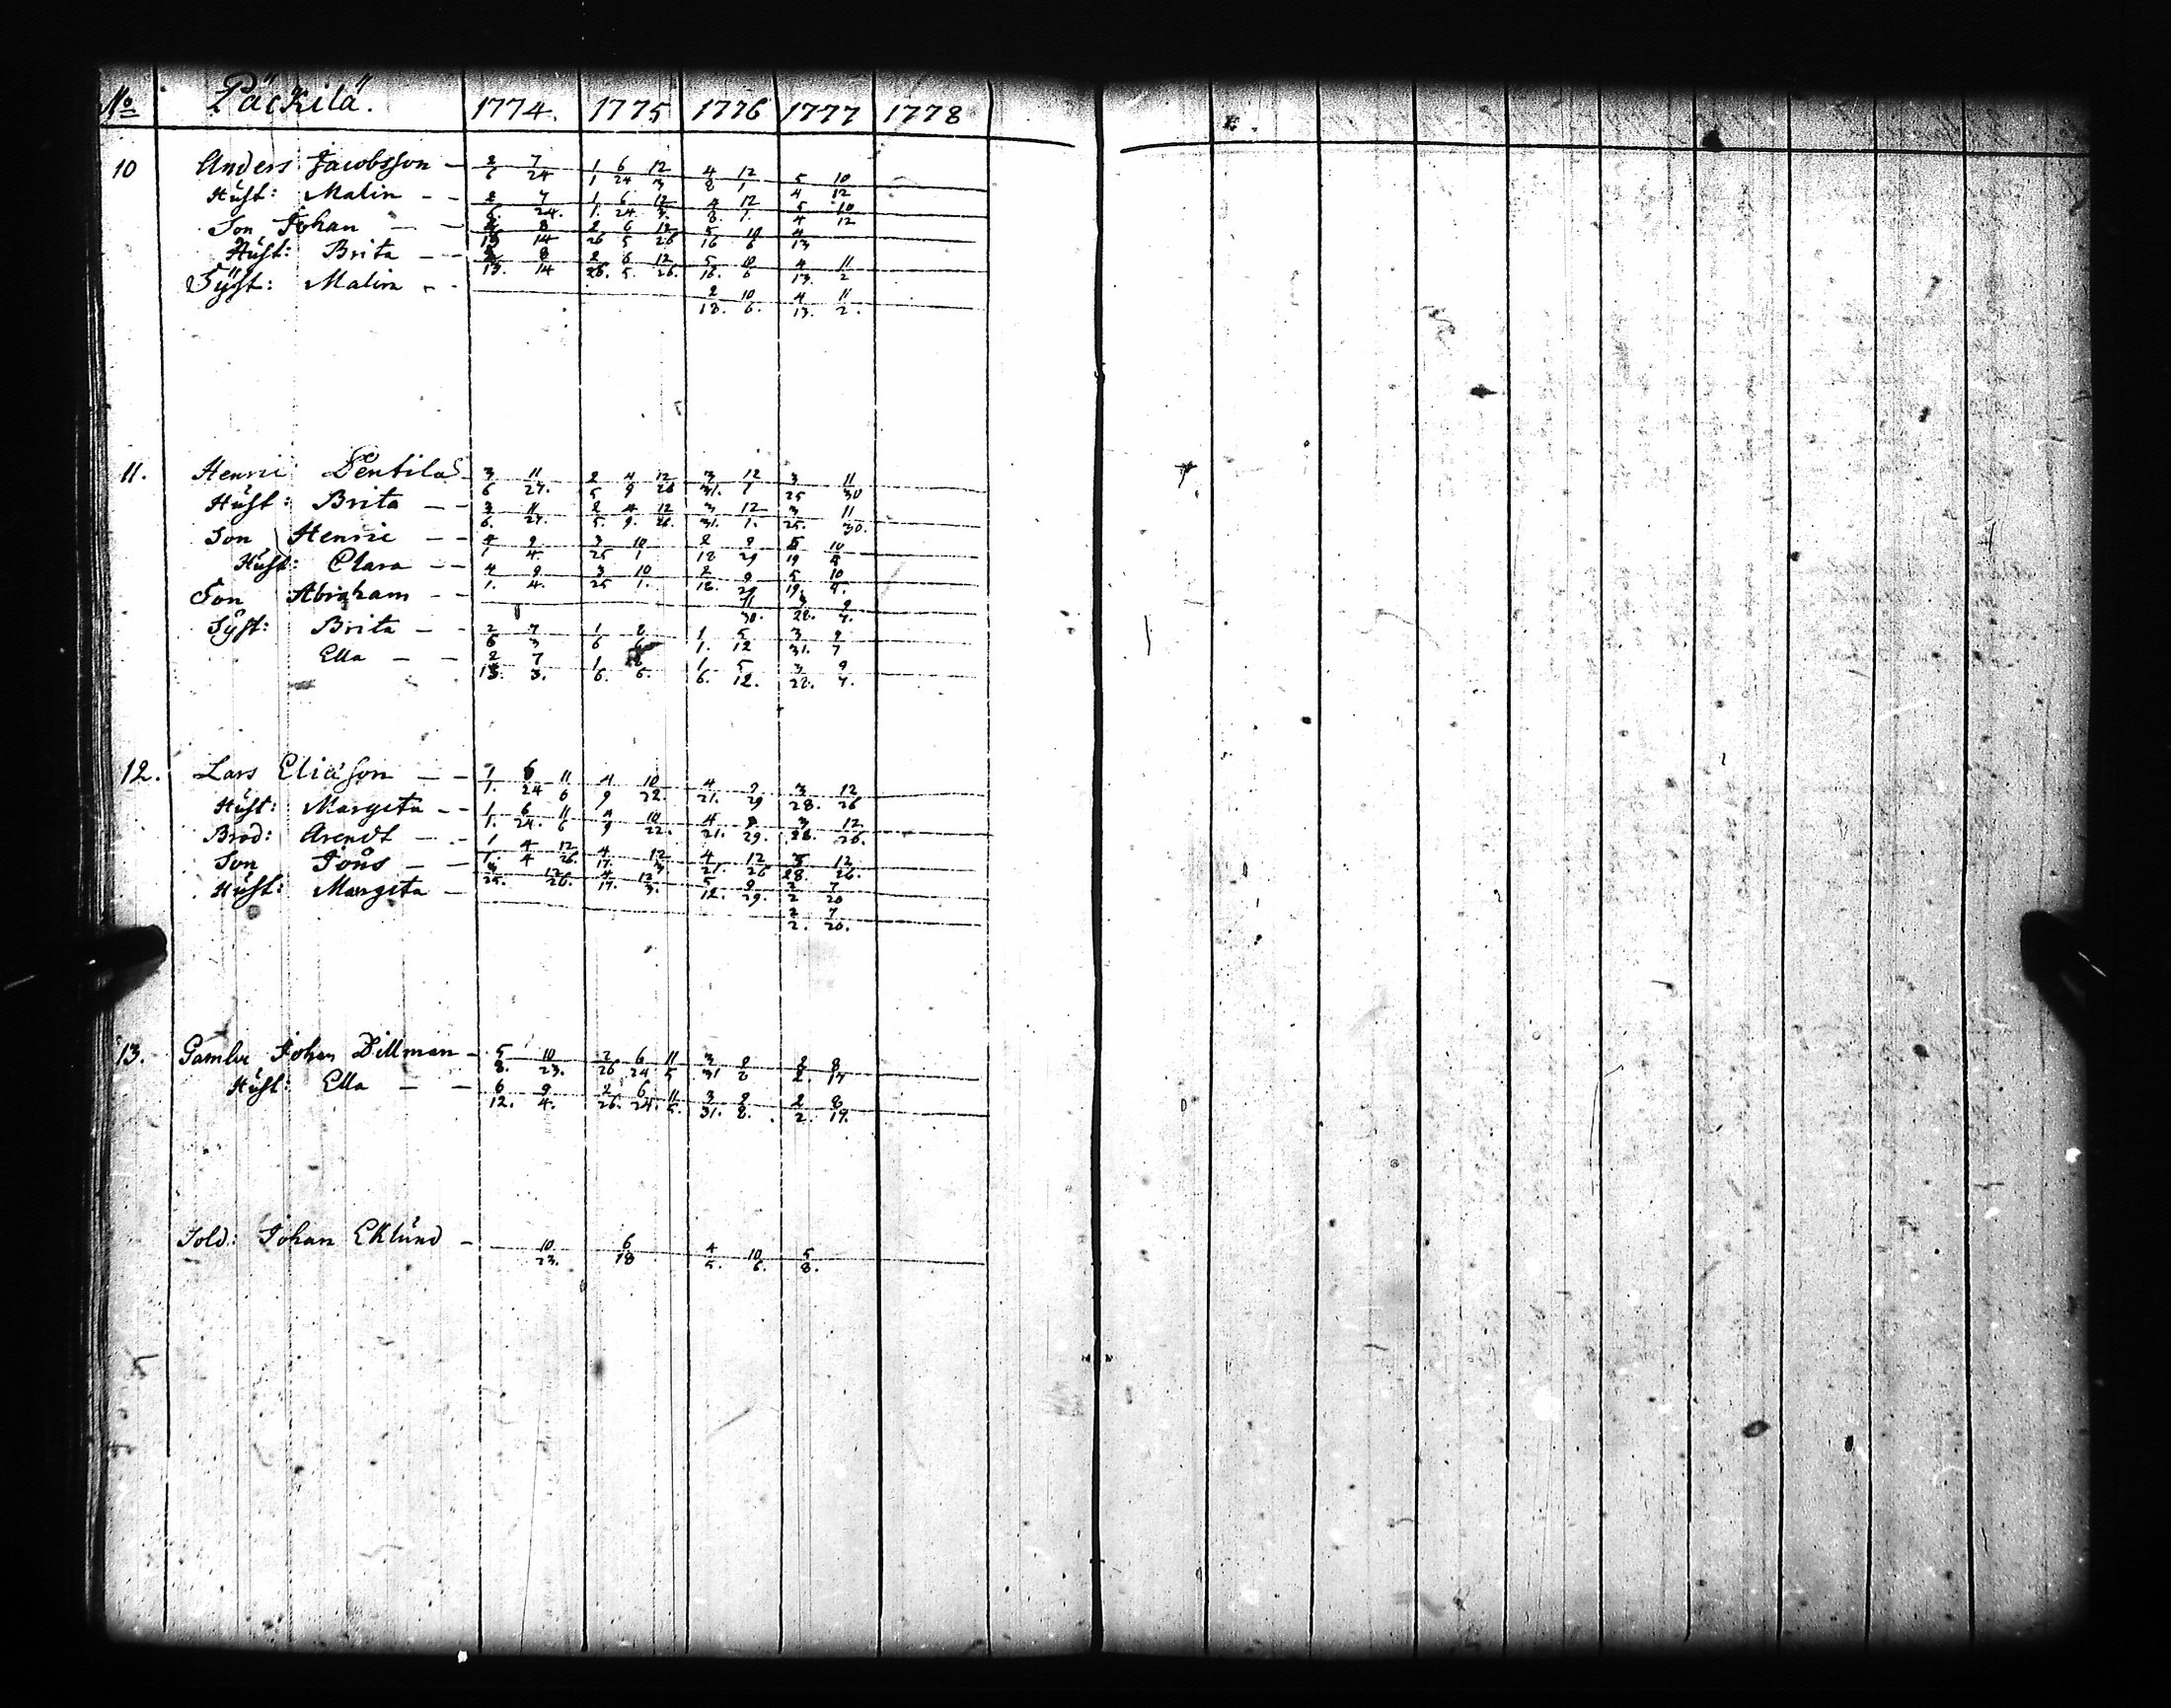 No Päckilä. 1774. 1775 1776 1777 1778
10 Anders Jacobsson — 2/6 7/24 1/1 6/24 12/3 4/8 12/1 5/4 10/12
Hust: Malin - - 2/6. 7/24. 1/1. 6/24 12/3. 4/8. 12/1. 5/4 10/12
Son Johan — — 8/14 2/26 6/5 12/26 5/16 10/6 4/13
Hust: Brita — - 8/14 2/26. 6/5. 12/26. 5/16. 10/6 4/13. 11/2
Syst: Malin - - 2/18. 10/6. 4/13. 11/2.
11. Henric Pentila 3/6 11/27. 2/5 4/9 12/26 3/31. 12/1 3/25 11/30
Hust: Brita — - 3/6. 11/27. 2/5. 4/9. 12/26. 3/31. 12/1. 3/25. 11/30.
Son Henric - - 4/1 9/4. 3/25 10/1 2/18 9/29 5/19 10/5
Hust: Clara — - 4/1. 9/4. 3/25 10/1. 2/18. 9/29 5/19.
Son Abraham - - 11/30. 9/7.
Syst: Brita — - 2/6 7/3 1/6 1/1. 5/12 3/31. 9/7
Ella — - 2/13. 7/3. 1/6. 1/6. 5/12. 3/28. 9/7.
12. Lars Eliäson — - 1/1. 6/24 11/6 4/9 10/22. 4/21. 9/29 3/28. 12/26
Hust: Margeta - - 1/1. 6/24. 11/6 4/9 10/22. 4/21. 9/29. 3/28. 12/26.
Brod: Arendt — - 1/1. 4/4 12/26 4/17. 12/3 4/21. 12/26 3/28. 12/26.
Son Jöns — — 3/25. 12/26. 4/17. 12/3. 5/12. 9/29. 2/2 7/20
Hust: Margeta — 2/2. 7/20.
13. Gamle Johan Dillman - 5/8. 10/23. 2/26 6/24 11/5 3/31 8/8 2/2. 8/17
Hust: Ella — — 6/12. 9/4. 2/26. 6/24. 11/5. 3/31. 8/8. 2/2. 8/17.
Sold: Johan Eklund - 10/23. 6/18 4/5. 10/6. 5/8.